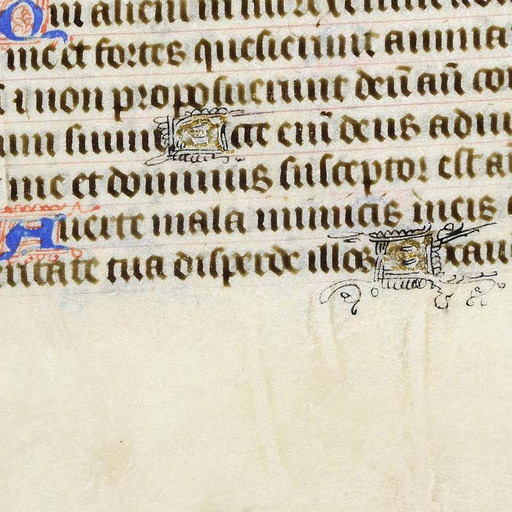 Qm alieni insurrexerunt
me et fortes quesierunt anima
et non proposuerunt deū an̄ con
um suum Ecce enī deus adiu
me et dominus susceptor est an
Auerte mala inimicis meis
eritate tua disperde illos Exau